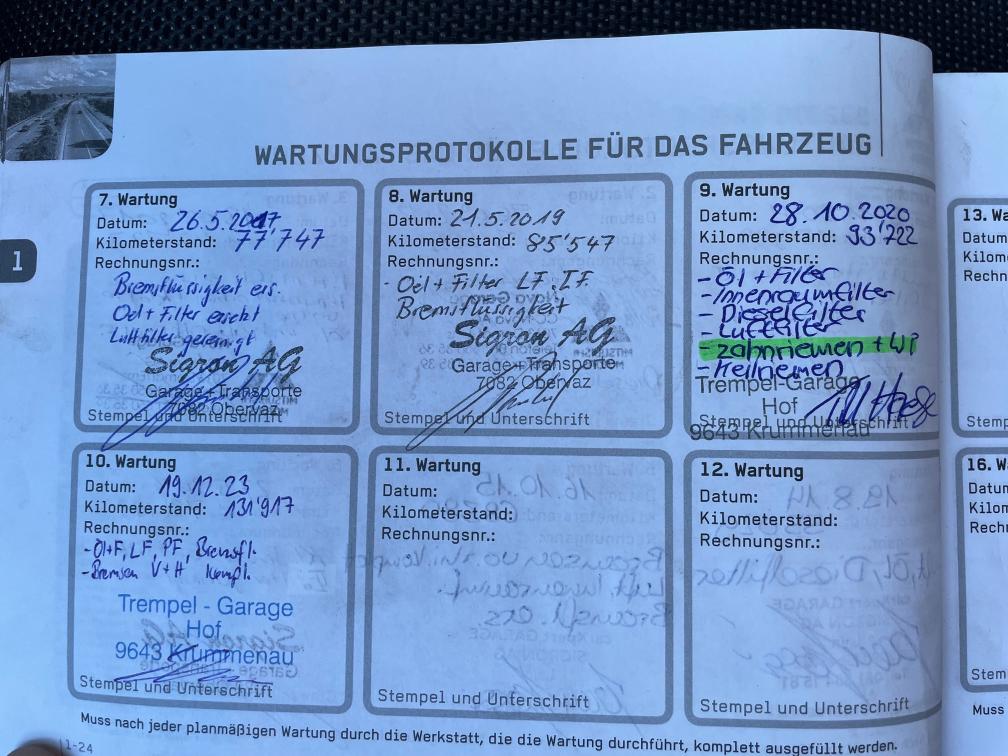 WARTUNGSPROTOKOLLE FÜR DAS FAHRZEUG
1
7. Wartung
Datum: 26.5.2017
Kilometerstand: 77'747
Rechnungsnr.:
Bremsflüssigkeit ers.
Oel + Filter
Luftfilter gereinigt
Sigron AG
Garage + Transporte
7082 Obervaz
Stempel und Unterschrift
8. Wartung
Datum: 21.5.2019
Kilometerstand: 85'547
Rechnungsnr.:
- Oel + Filter LF. IF.
Bremsflüssigkeit
Sigron AG
Garage + Transporte
7082 Obervaz
Stempel und Unterschrift
9. Wartung
Datum: 28.10.2020
Kilometerstand: 93'722
Rechnungsnr.:
- Öl + Filter
- Innenraumfilter
- Dieselfilter
- Luftfilter
- Zahnriemen + WP
- Keilriemen
Trempel-Garage
Hof
Stempel und Unterschrift
9643 Krummenau
13. Wa
Datum
Kilom
Rechn
Stem
10. Wartung
Datum: 19.12.23
Kilometerstand: 131'917
Rechnungsnr.:
- Öl+F, LF, PF, Bremsfl.
- Bremsen V+H kompl.
Trempel - Garage
Hof
9643 Krummenau
Stempel und Unterschrift
11. Wartung
Datum:
Kilometerstand:
Rechnungsnr.:
Stempel und Unterschrift
12. Wartung
Datum:
Kilometerstand:
Rechnungsnr.:
Stempel und Unterschrift
16. W
Datum
Kilom
Rechn
Stem
Muss nach jeder planmäßigen Wartung durch die Werkstatt, die die Wartung durchführt, komplett ausgefüllt werden.
Muss
1-24